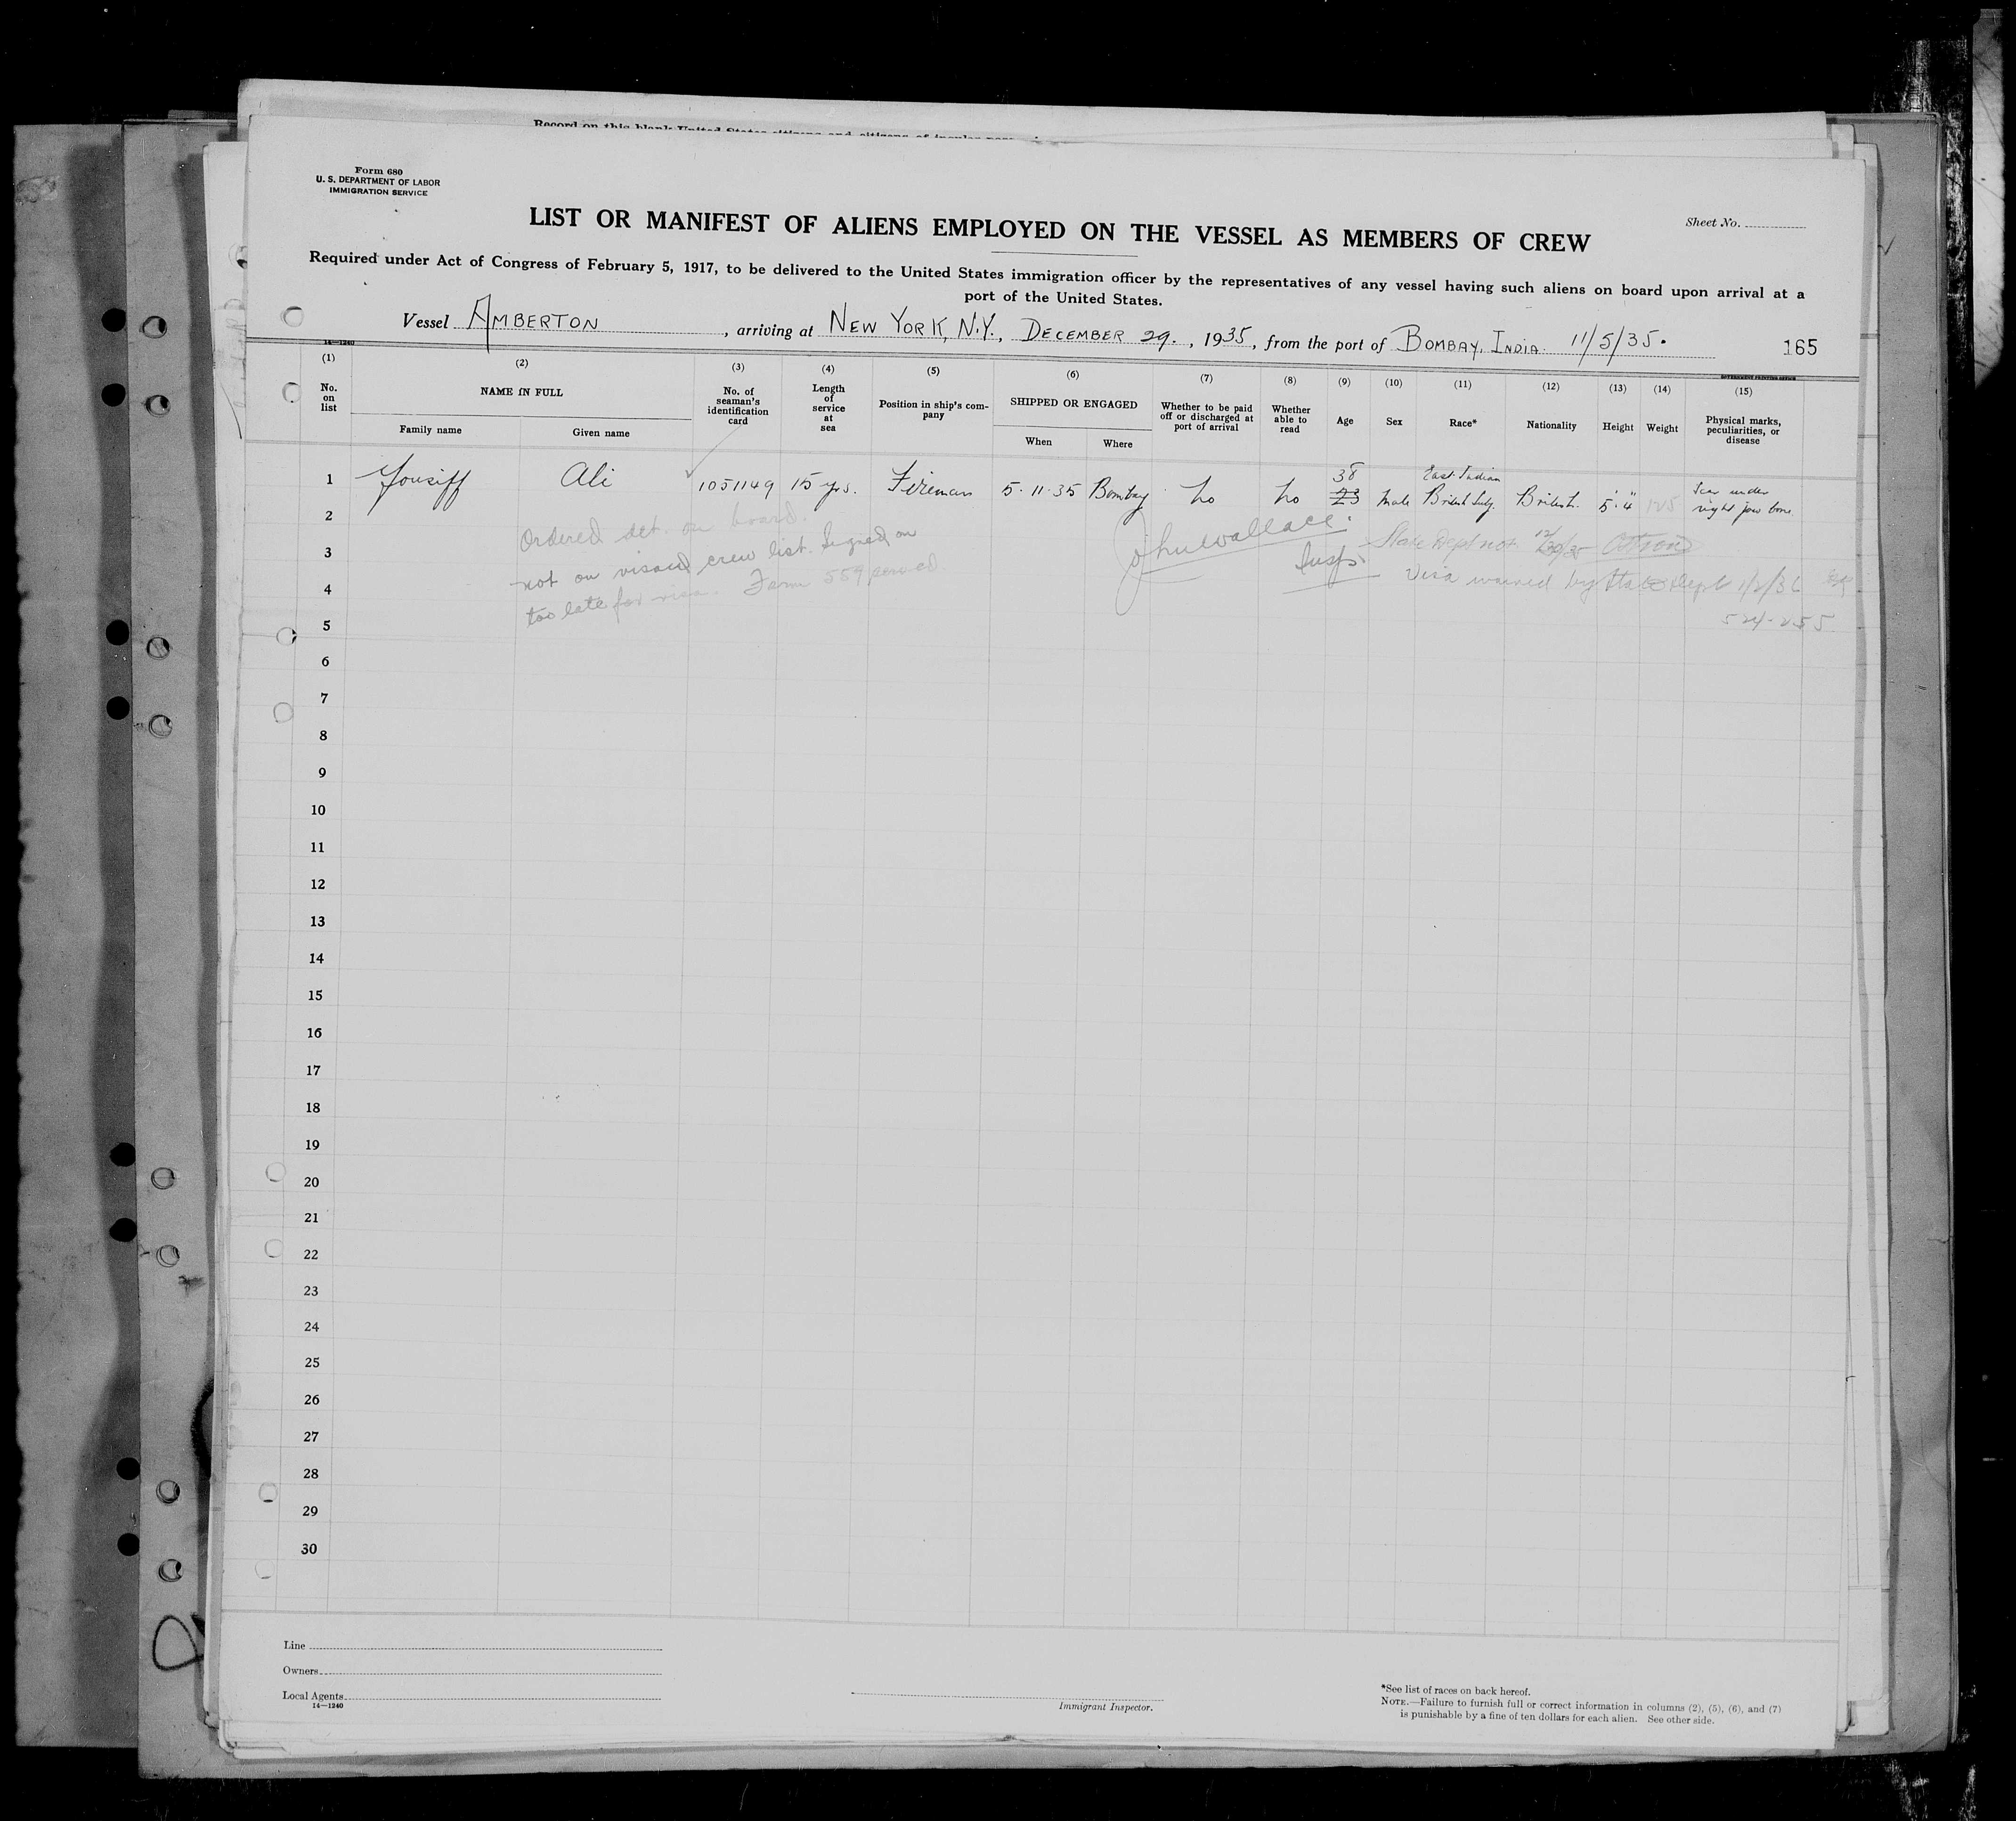 Record on this blank United States citizens and citizens of insular
Form 680
U. S. DEPARTMENT OF LABOR
IMMIGRATION SERVICE
Sheet No.
LIST OR MANIFEST OF ALIENS EMPLOYED ON THE VESSEL AS MEMBERS OF CREW
Required under Act of Congress of February 5, 1917, to be delivered to the United States immigration officer by the representatives of any vessel having such aliens on board upon arrival at a
port of the United States.
Vessel AMBERTON, arriving at NEW YORK, N.Y., DECEMBER 29, 1935, from the port of BOMBAY, INDIA. 11/5/35.
165
14—1240
GOVERNMENT PRINTING OFFICE
(1) (2) (3) (4) (5) (6) (7) (8) (9) (10) (11) (12) (13) (14) (15)
No. on list
NAME IN FULL
Family name
Given name
No. of seaman's identification card
Length of service at sea
Position in ship's company
SHIPPED OR ENGAGED
When
Where
Whether to be paid off or discharged at port of arrival
Whether able to read
Age
Sex
Race*
Nationality
Height
Weight
Physical marks, peculiarities, or disease
38 East Indian
1 Yousiff Ali 1051149 15 yrs. Fireman 5-11-35 Bombay No No 23 Male British Subj. British. 5'4" 125 Scar under right jaw bone.
2 Ordered det. on board.
3 not on visaed crew list. Signed on
4 too late for visa. Form 559 served.
John Wallace
Insp.
State Dept not. 12/30/35
Visa waived by State Dept 1/2/36
524-255
5
6
7
8
9
10
11
12
13
14
15
16
17
18
19
20
21
22
23
24
25
26
27
28
29
30
Line
Owners
Local Agents
14—1240
Immigrant Inspector.
*See list of races on back hereof.
NOTE.—Failure to furnish full or correct information in columns (2), (5), (6), and (7)
is punishable by a fine of ten dollars for each alien. See other side.